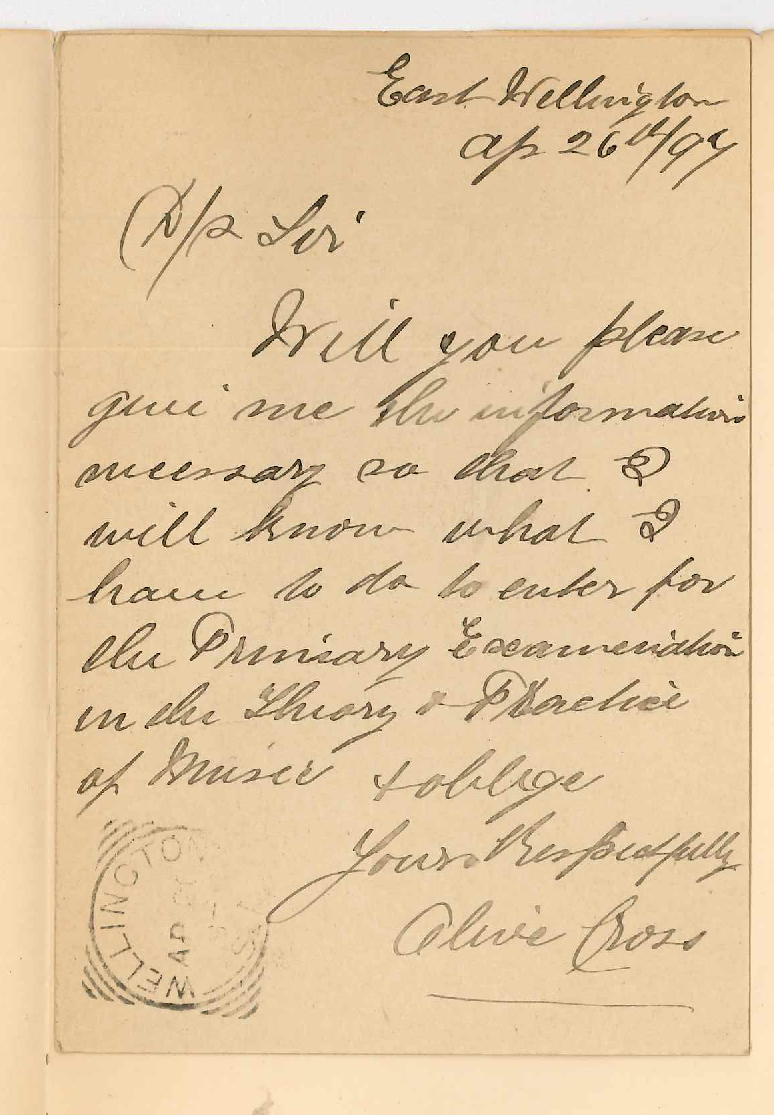 East Wellington
Ap 26th/97
D/r Sir
Will you please
give me the information
necessary so that I
will know what I
have to do to enter for
the Primary Examenation
in the Theory & Practice
of Music & oblige
Yours Respectfully
Olive Cross
WELLINGTON
AP